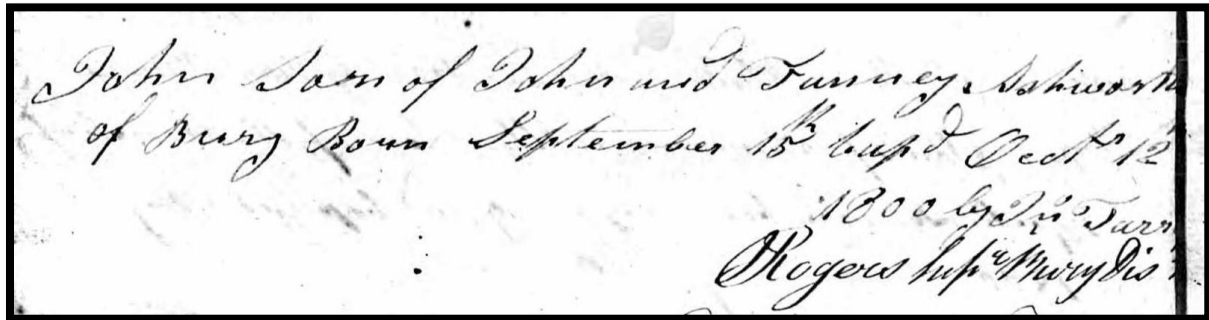 John Son of John and Fanney Ashworth
of Burg Born September 15th bapd Oectr 12
1800 by Jn Farr
JRogers Supr Bury Dis